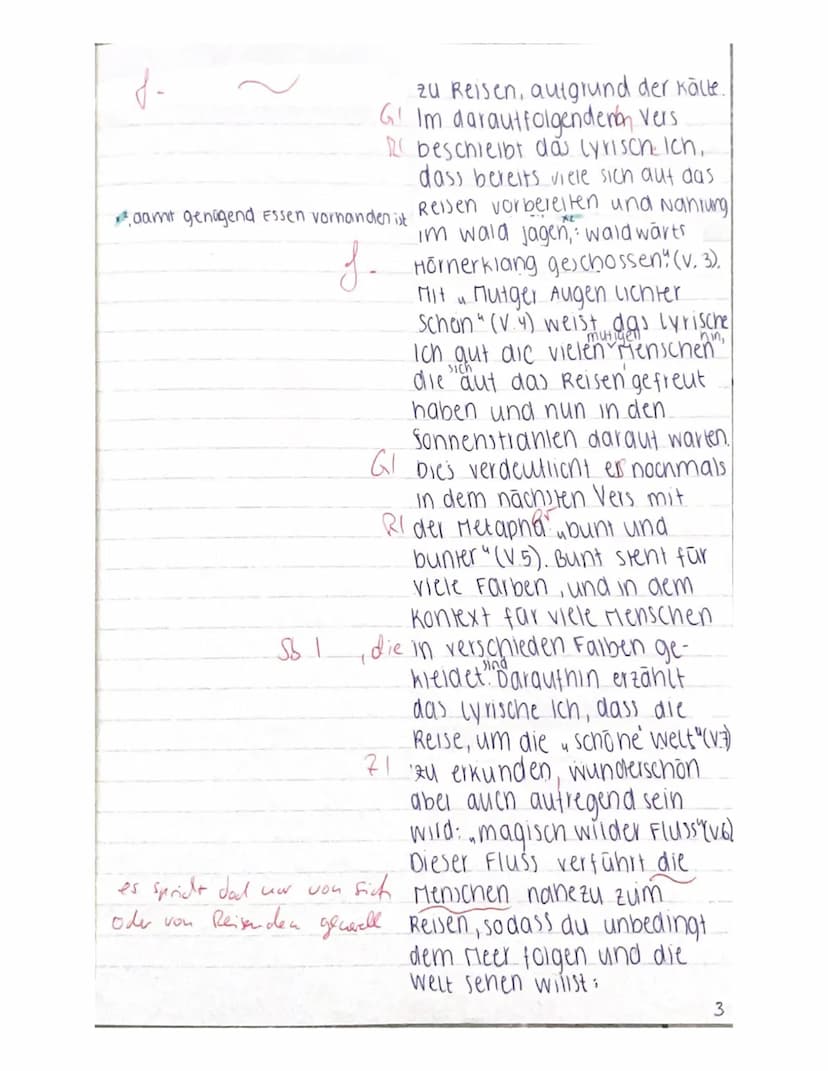 f. ~
zu Reisen, aufgrund der Kälte.
G1 Im darauffolgenden Vers
R1 beschreibt das lyrisch Ich,
dass bereits viele sich auf das
Reisen vorbereiten und Nahrung
, damit genügend Essen vorhanden ist
im Wald jagen,: waldwärts
f. Hörnerklang geschossen" (V. 3).
Mit „Mutger Augen lichter
Schein" (V. 4) weist das lyrische
Ich auf die vielen mutigen Menschen hin,
die sich auf das Reisen gefreut
haben und nun in den
Sonnenstrahlen darauf warten.
G1 Dies verdeutlicht er nochmals
in dem nächsten Vers mit
R1 der Metapher „bunt und
bunter" (V.5). Bunt steht für
viele Farben, und in dem
Kontext für viele Menschen
Sb 1 , die in verschieden Farben ge-
kleidet sind. Daraufhin erzählt
das lyrische Ich, dass die
Reise, um die „schöne Welt" (V.7)
Z1 zu erkunden, wunderschön
aber auch aufregend sein
wird: „magisch wilder Fluss" (V.6)
Dieser Fluss verführt die
es spricht doch nur von sich
Menschen nahezu zum
oder von Reisenden generell
Reisen, sodass du unbedingt
dem Meer folgen und die
Welt sehen willst:
3